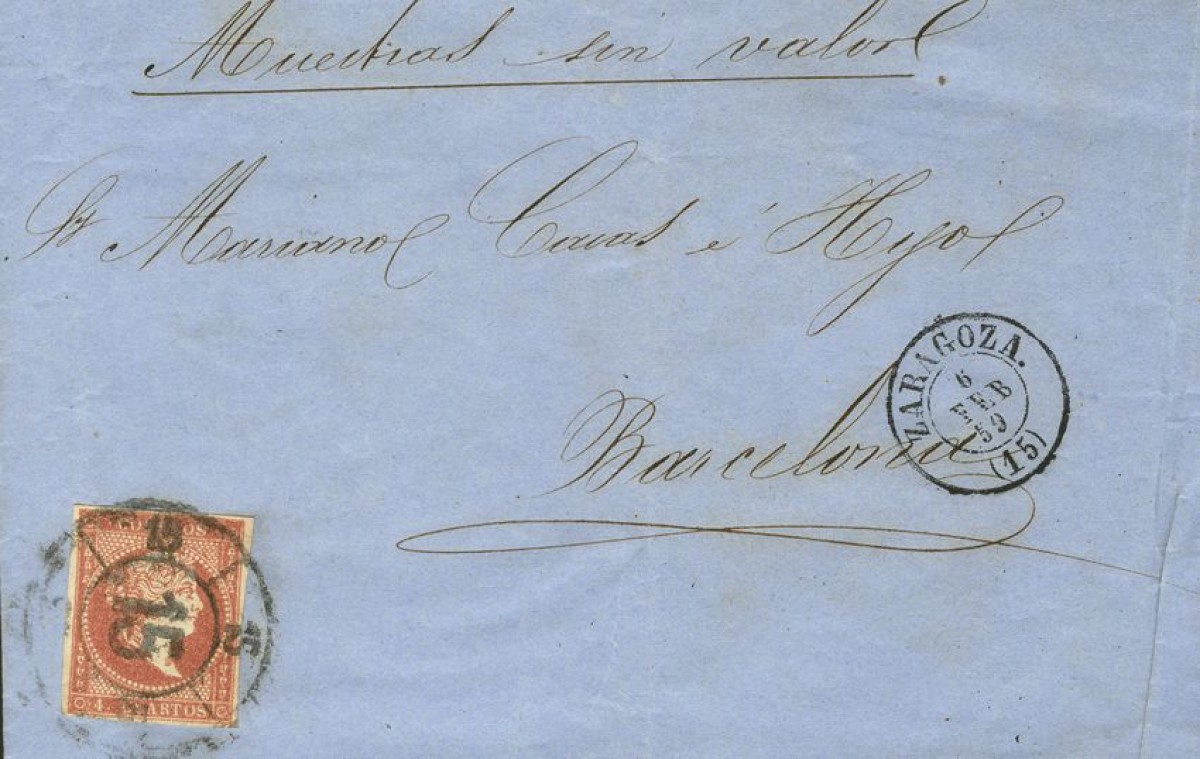 Muestras sin valor
Sr Mariano Casas é Hijo
Barcelona
ZARAGOZA.
6
FEB
59
(15)
15
15
15
4. CUARTOS